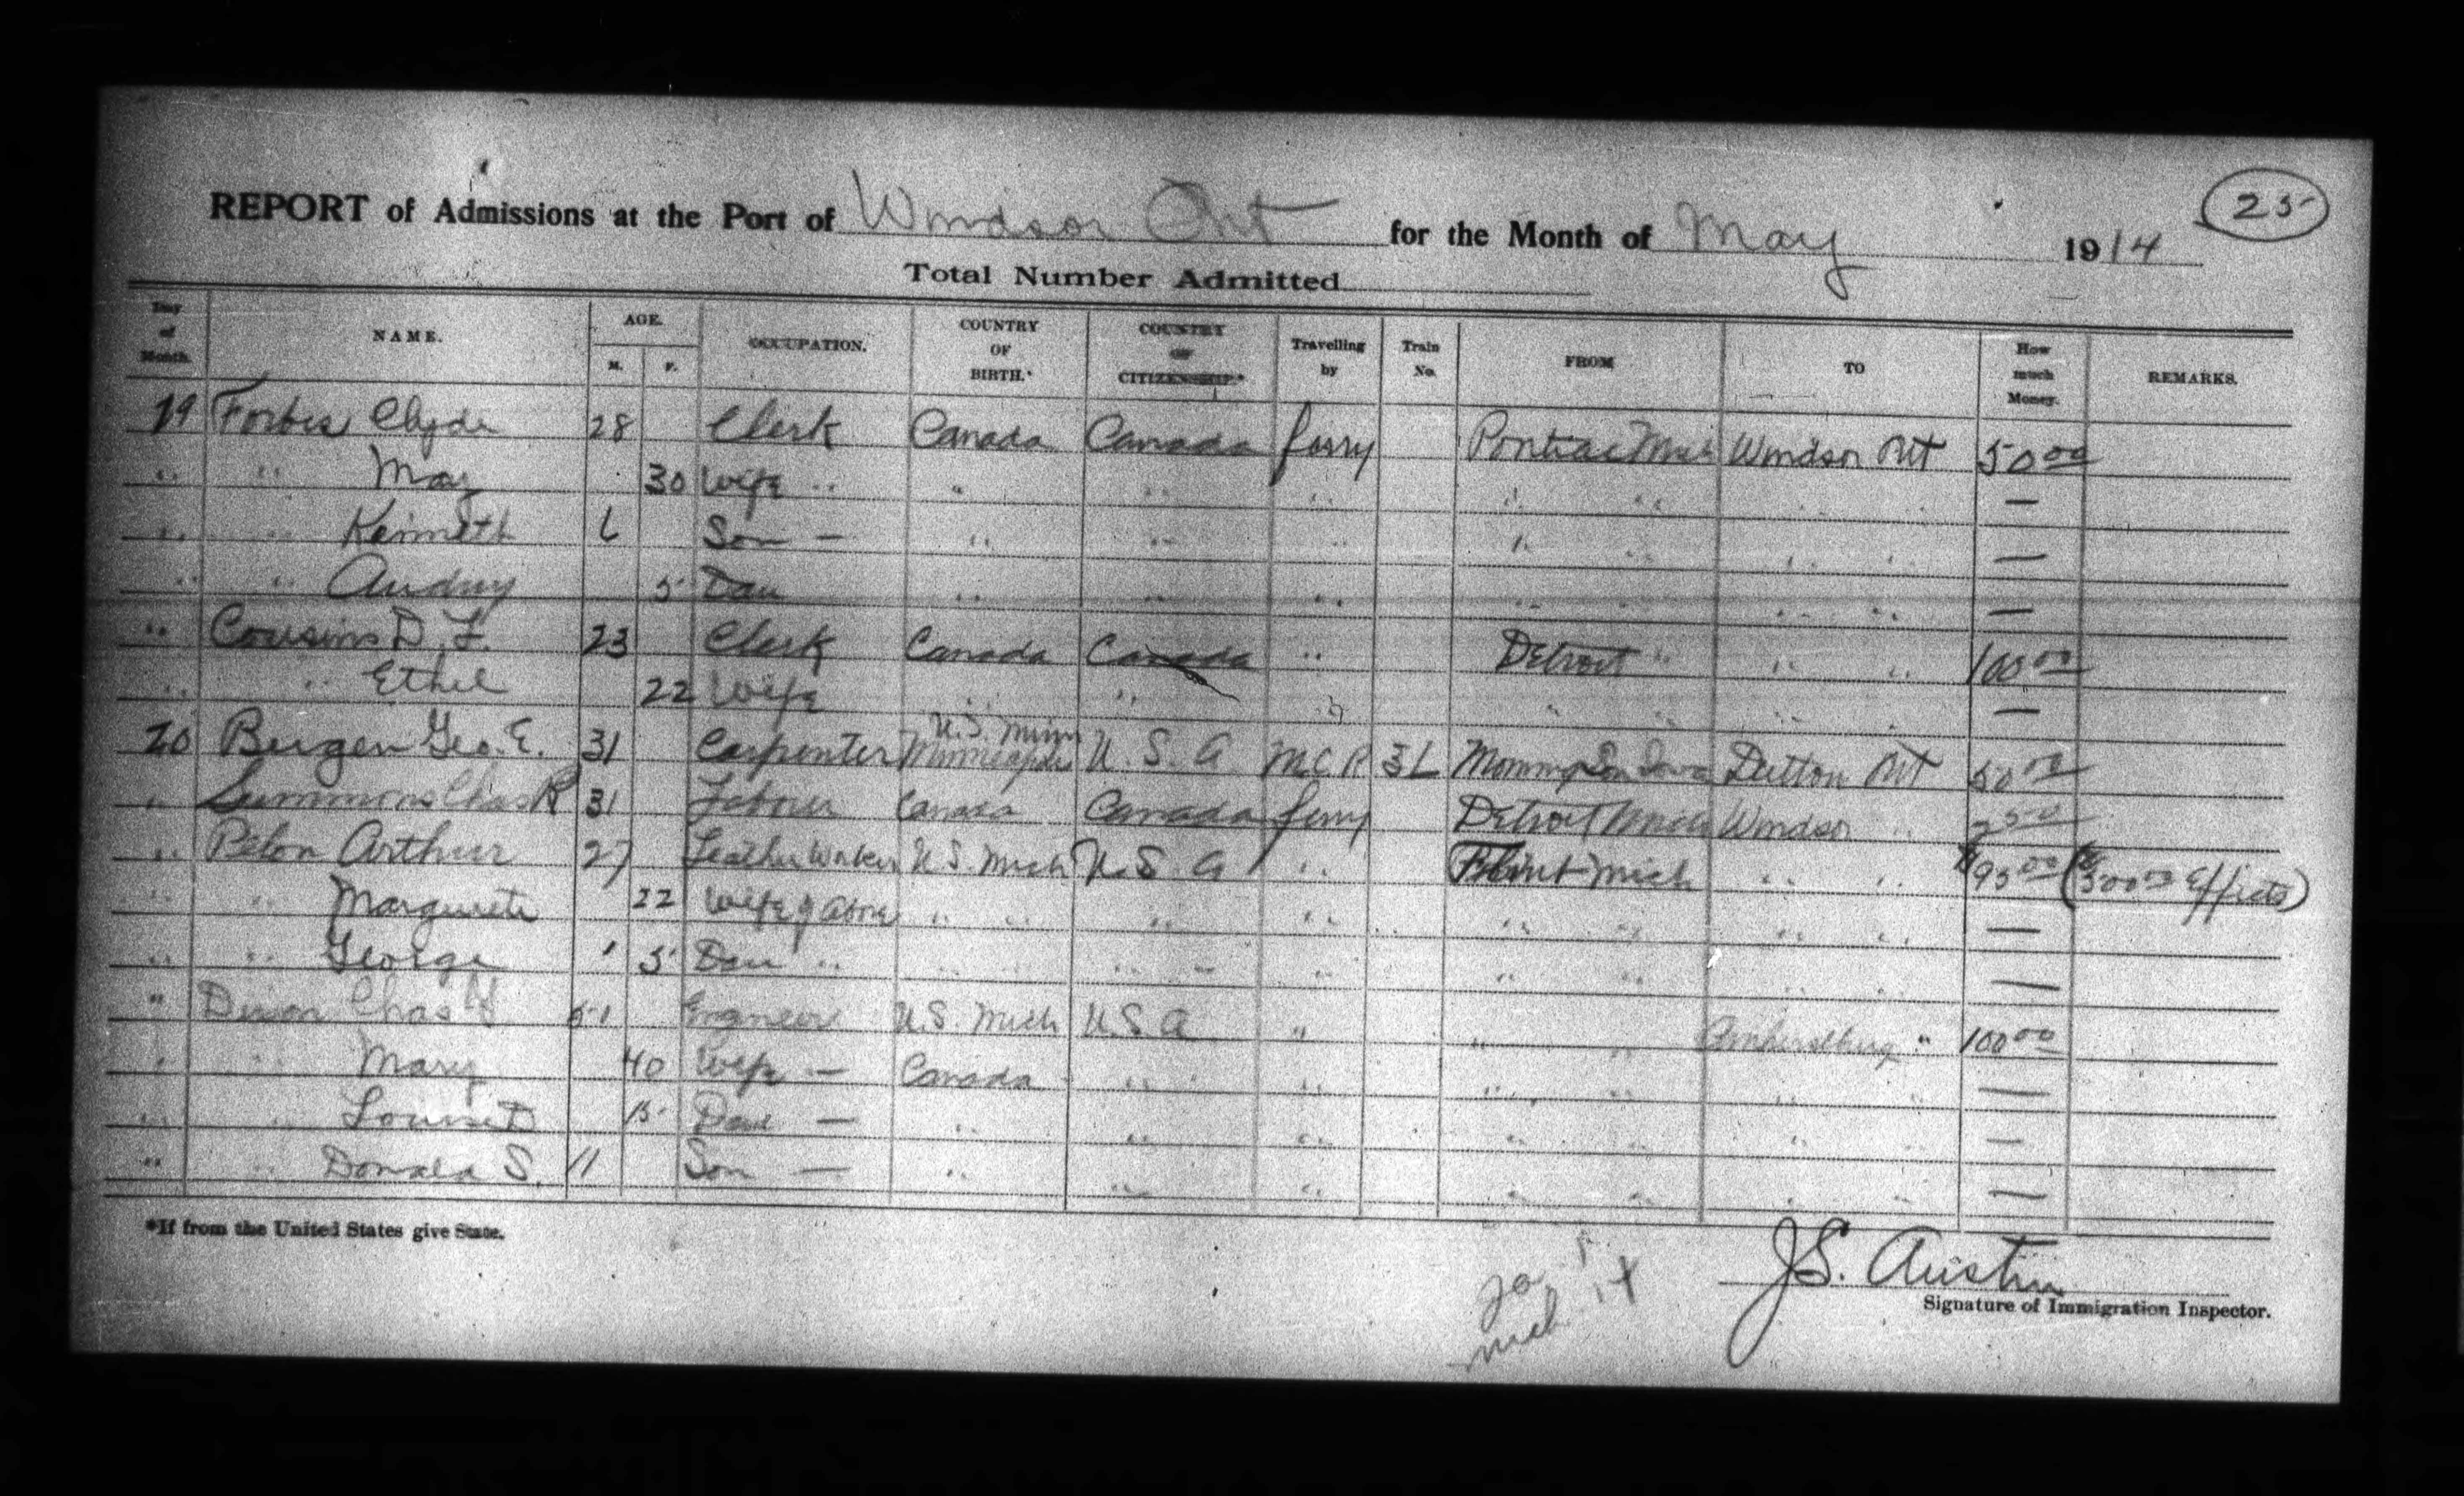 25
REPORT of Admissions at the Port of Windsor Ont for the Month of May 1914
Total Number Admitted
Day of Month. NAME. AGE. M. F. OCCUPATION. COUNTRY OF BIRTH.* COUNTRY OF CITIZENSHIP.* Travelling by Train No. FROM TO How much Money. REMARKS.
19 Forbes Clyde 28 Clerk Canada Canada ferry Pontiac Mich Windsor Ont 50 00
" " May 30 Wife " " " " " " " " —
" " Kenneth 6 Son — " " " " " " " —
" " Audrey 5 Dau " " " " " " " —
" Cousins D. F. 23 Clerk Canada Canada " Detroit " " " 100 00
" " Ethel 22 Wife " " " " " " " —
20 Bergen Geo. E. 31 Carpenter U.S. Minn Minneapolis U.S.A MCR 36 Iowa Dutton Ont 50 00
" Summons Chas R 31 Labour Canada Canada ferry Detroit Mich Windsor " 25 00
" Pelon Arthur 27 Leather Worker U.S. Mich U.S.A " Flint Mich " " $95 00 ($500 00 Effects)
" " Marguerite 22 Wife of above " " " " " " " " —
" " George 5 Dau " " " " " " " " " —
" Chas 51 Engineer U.S. Mich U.S.A " " " Amherstburg " 100 00
" " Mary 40 Wife — Canada " " " " " " —
" " Louise D 15 Dau — " " " " " " " —
" " Donald S. 11 Son — " " " " " " " —
*If from the United States give State.
J.S. Austin
Signature of Immigration Inspector.